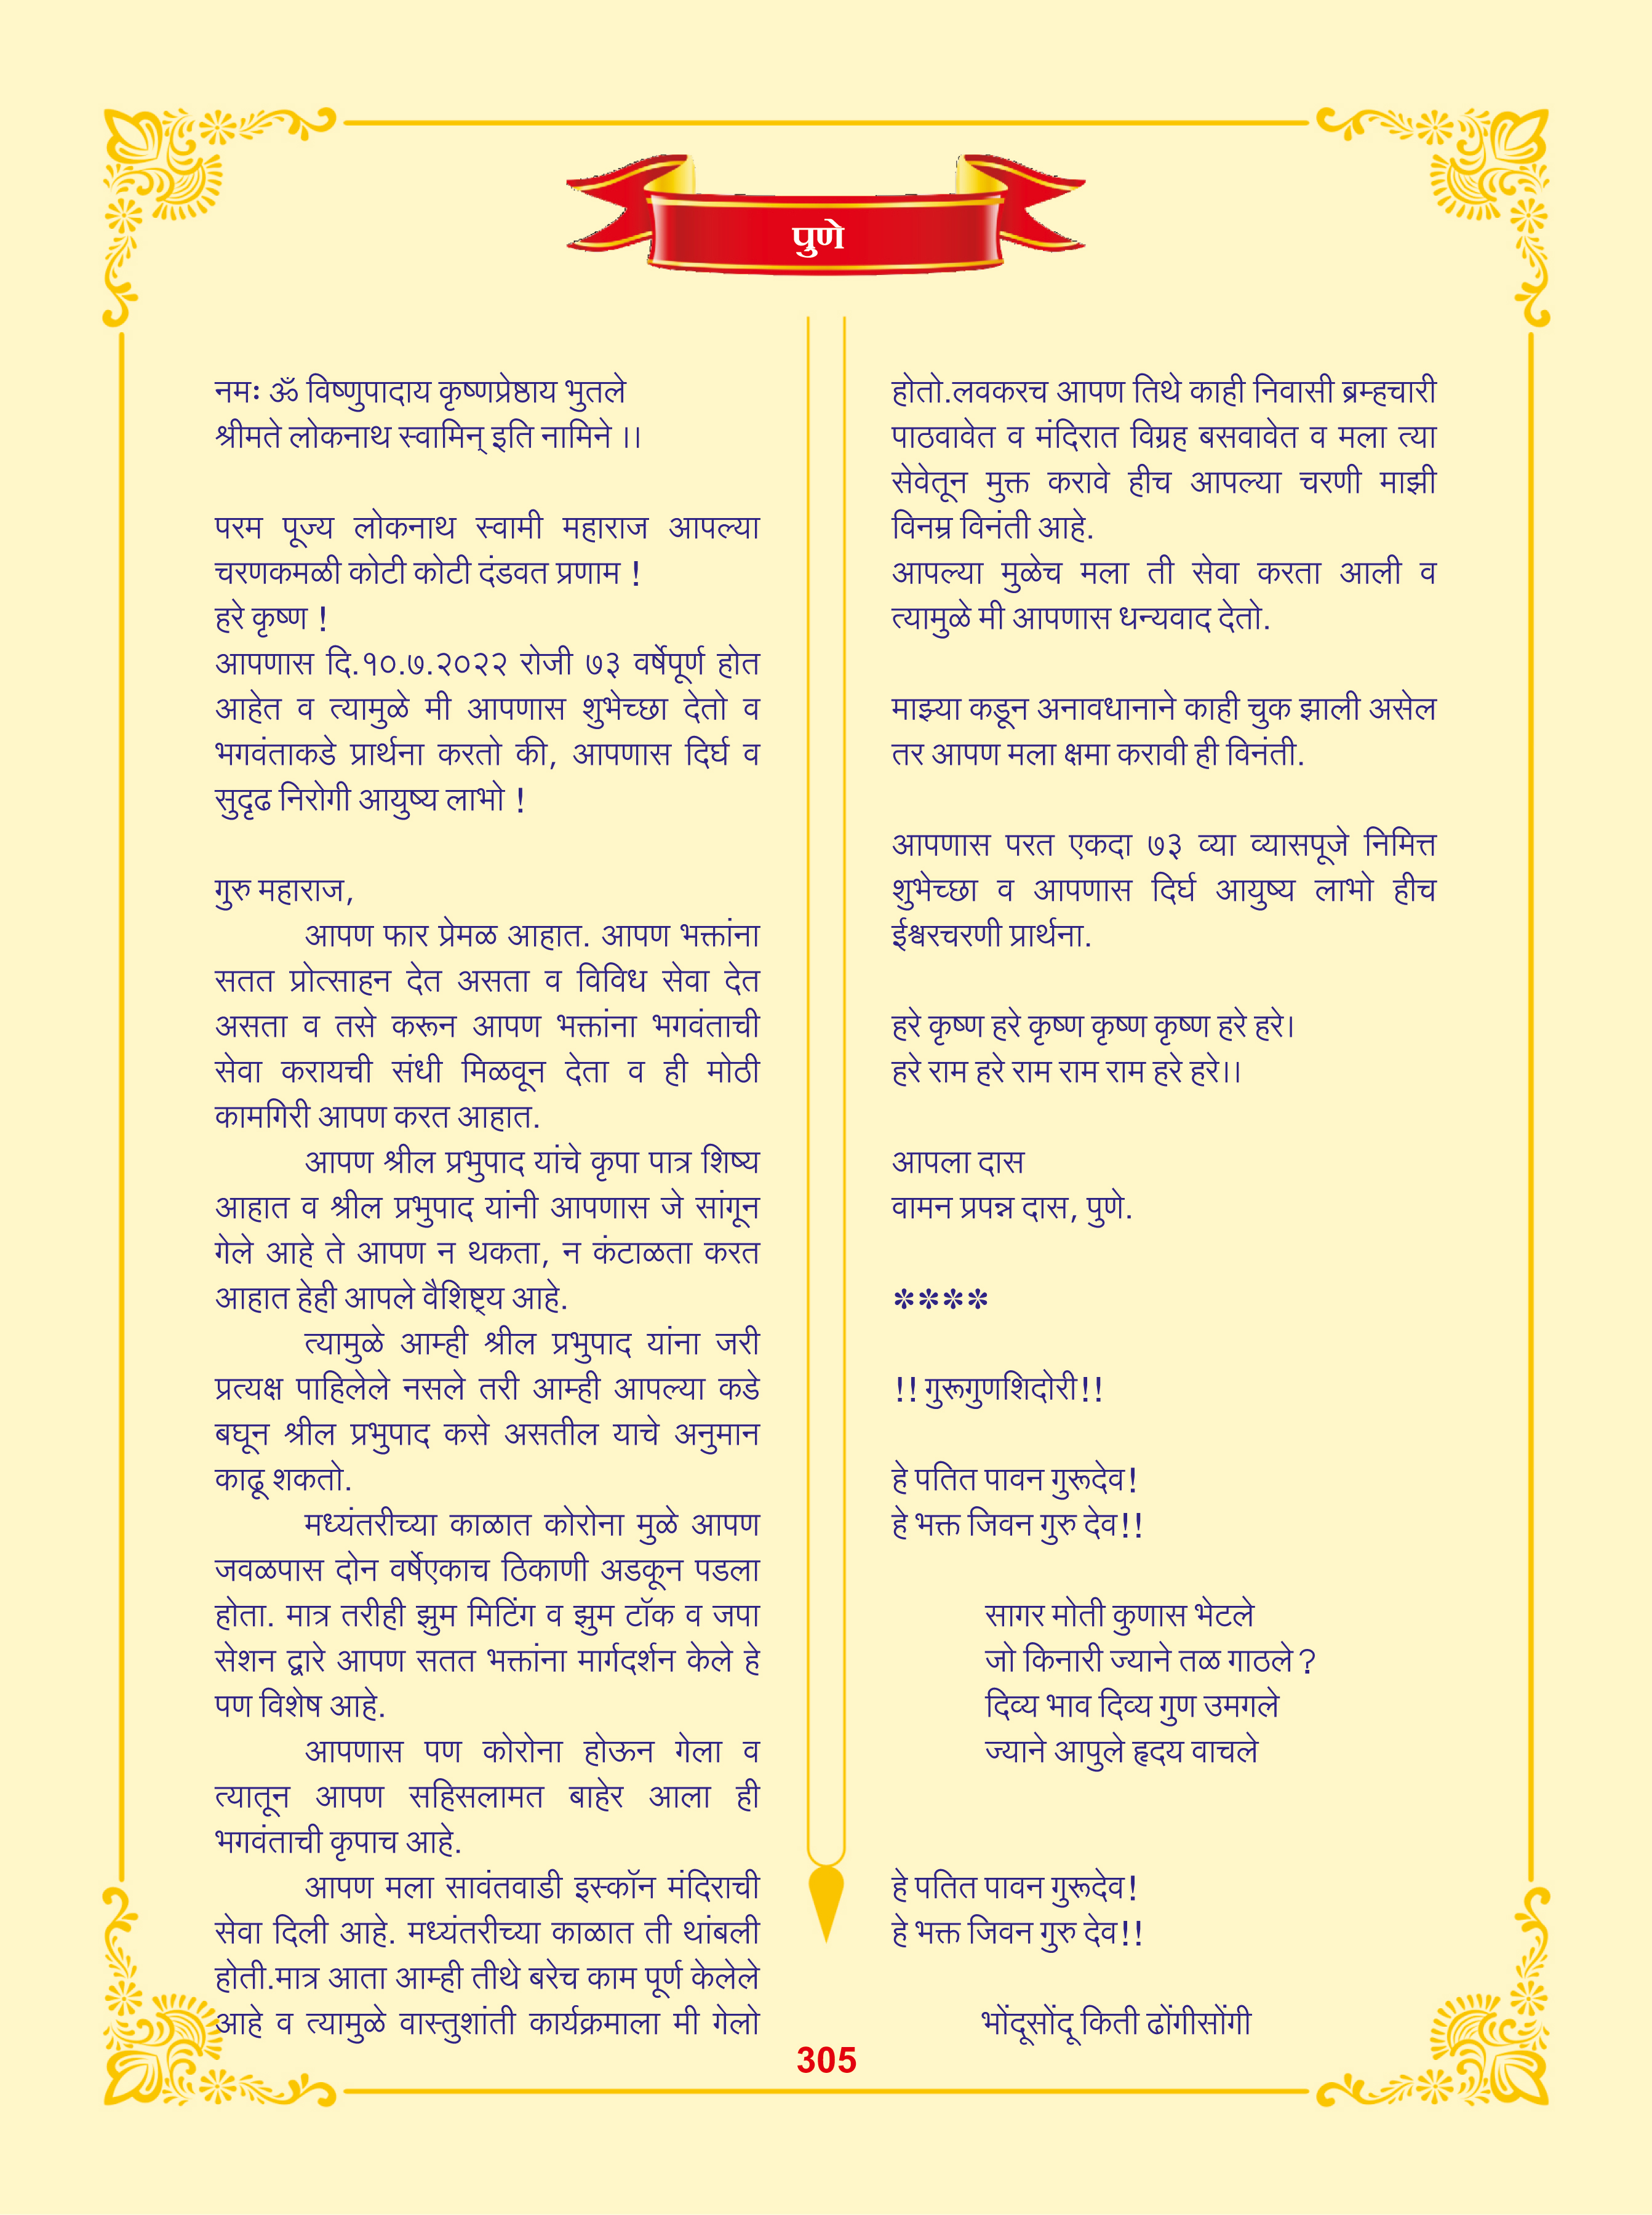 पुणे
नमः ॐ विष्णुपादाय कृष्णप्रेष्ठाय भुतले
श्रीमते लोकनाथ स्वामिन् इति नामिने ।।
परम पूज्य लोकनाथ स्वामी महाराज आपल्या
चरणकमळी कोटी कोटी दंडवत प्रणाम !
हरे कृष्ण !
आपणास दि.१०.७.२०२२ रोजी ७३ वर्षेपूर्ण होत
आहेत व त्यामुळे मी आपणास शुभेच्छा देतो व
भगवंताकडे प्रार्थना करतो की, आपणास दिर्घ व
सुदृढ निरोगी आयुष्य लाभो !
गुरु महाराज,
आपण फार प्रेमळ आहात. आपण भक्तांना
सतत प्रोत्साहन देत असता व विविध सेवा देत
असता व तसे करून आपण भक्तांना भगवंताची
सेवा करायची संधी मिळवून देता व ही मोठी
कामगिरी आपण करत आहात.
आपण श्रील प्रभुपाद यांचे कृपा पात्र शिष्य
आहात व श्रील प्रभुपाद यांनी आपणास जे सांगून
गेले आहे ते आपण न थकता, न कंटाळता करत
आहात हेही आपले वैशिष्ट्य आहे.
त्यामुळे आम्ही श्रील प्रभुपाद यांना जरी
प्रत्यक्ष पाहिलेले नसले तरी आम्ही आपल्या कडे
बघून श्रील प्रभुपाद कसे असतील याचे अनुमान
काढू शकतो.
मध्यंतरीच्या काळात कोरोना मुळे आपण
जवळपास दोन वर्षेएकाच ठिकाणी अडकून पडला
होता. मात्र तरीही झुम मिटिंग व झुम टॉक व जपा
सेशन द्वारे आपण सतत भक्तांना मार्गदर्शन केले हे
पण विशेष आहे.
आपणास पण कोरोना होऊन गेला व
त्यातून आपण सहिसलामत बाहेर आला ही
भगवंताची कृपाच आहे.
आपण मला सावंतवाडी इस्कॉन मंदिराची
सेवा दिली आहे. मध्यंतरीच्या काळात ती थांबली
होती.मात्र आता आम्ही तीथे बरेच काम पूर्ण केलेले
आहे व त्यामुळे वास्तुशांती कार्यक्रमाला मी गेलो
होतो.लवकरच आपण तिथे काही निवासी ब्रम्हचारी
पाठवावेत व मंदिरात विग्रह बसवावेत व मला त्या
सेवेतून मुक्त करावे हीच आपल्या चरणी माझी
विनम्र विनंती आहे.
आपल्या मुळेच मला ती सेवा करता आली व
त्यामुळे मी आपणास धन्यवाद देतो.
माझ्या कडून अनावधानाने काही चुक झाली असेल
तर आपण मला क्षमा करावी ही विनंती.
आपणास परत एकदा ७३ व्या व्यासपूजे निमित्त
शुभेच्छा व आपणास दिर्घ आयुष्य लाभो हीच
ईश्वरचरणी प्रार्थना.
हरे कृष्ण हरे कृष्ण कृष्ण कृष्ण हरे हरे।
हरे राम हरे राम राम राम हरे हरे।।
आपला दास
वामन प्रपन्न दास, पुणे.
****
!! गुरूगुणशिदोरी!!
हे पतित पावन गुरूदेव!
हे भक्त जिवन गुरु देव!!
सागर मोती कुणास भेटले
जो किनारी ज्याने तळ गाठले?
दिव्य भाव दिव्य गुण उमगले
ज्याने आपुले हृदय वाचले
हे पतित पावन गुरूदेव!
हे भक्त जिवन गुरु देव!!
भोंदूसोंदू किती ढोंगीसोंगी
305